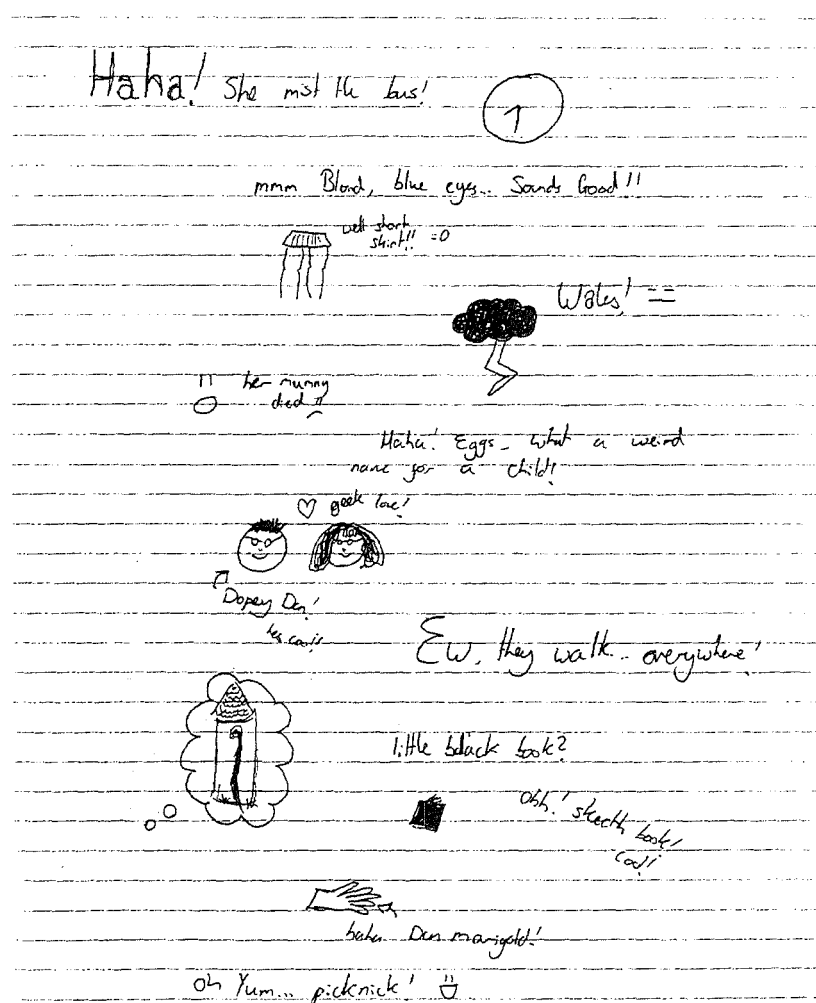 Haha! She mist the bus!
1
mmm Blond, blue eyes... Sounds Good!!
well short
skirt!! =O
Wales! ==
her mummy
died !!
Haha! Eggs - what a weird
name for a child!
geek love!
Dopey Dan!
hes cool!
Ew, they walk... everywhere!
little black book?
Ohh! skecth book!
Cool!
haha Dan marigold!
Oh Yum... picknick!